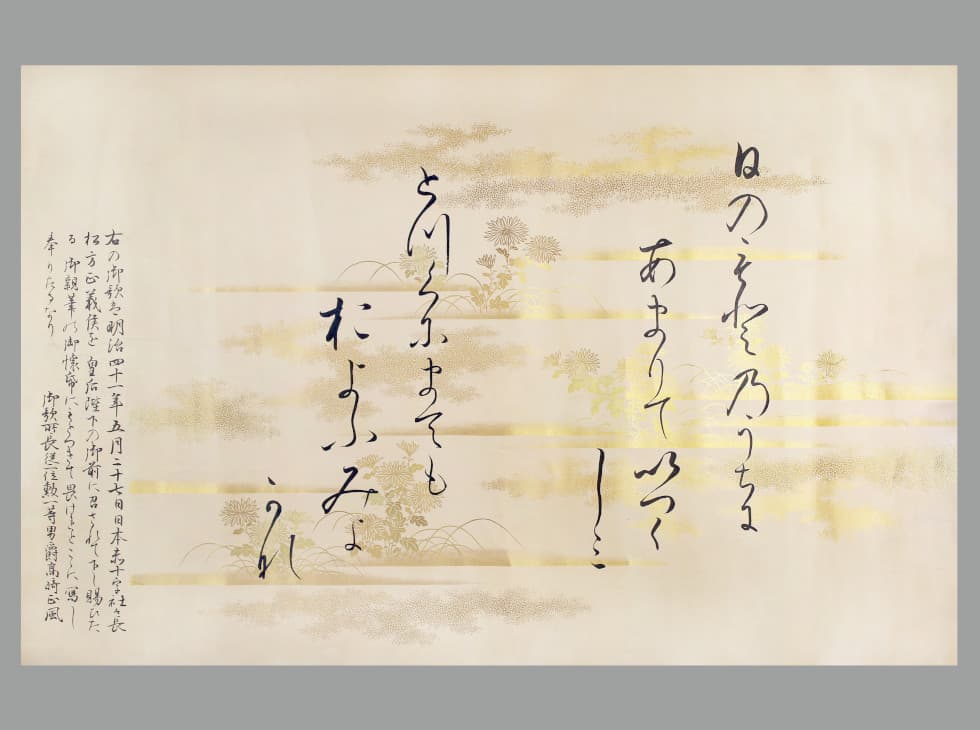 日のもとのうちに
あまりていつく
しミ
とつくにまても
およふみよ
かな
右の御歌は明治四十一年五月二十七日日本赤十字社々長
松方正義侯を 皇后陛下の御前に召されて下し賜ひた
る 御親筆の御懐帋にもとつきて畏けれとここに寫し
奉りたるなり
御歌所長従二位勲一等男爵高崎正風